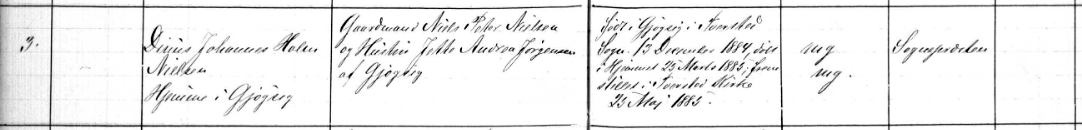 3.
Dinus Johannes Holm
Nielsen
Hjemme i Gjøgsig
Gaardmand Niels Peter Nielsen
og Hustru Jette Andrea Jørgensen
af Gjøgsig
født i Gjøgsig i Tversted
Sogn 13 December 1884, døbt
i Hjemmet 25 Marts 1885; frem
stillet i Tversted Kirke
25 Maj 1885.
ug
ug.
Sognepræsten